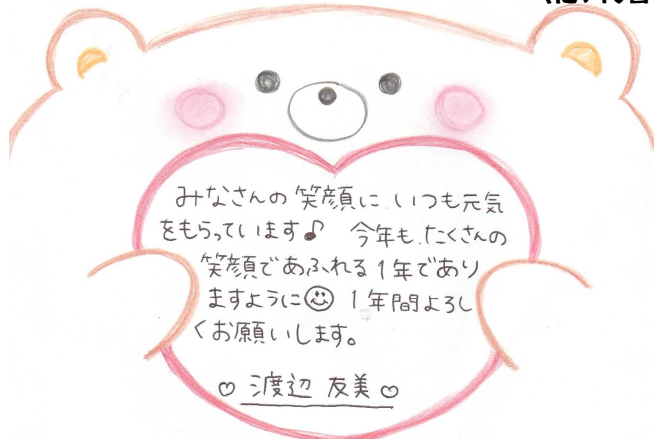 みなさんの笑顔に、いつも元気
をもらっています♪ 今年も、たくさんの
笑顔であふれる1年であり
ますように☺ 1年間よろし
くお願いします。
♡ 渡辺 友美 ♡